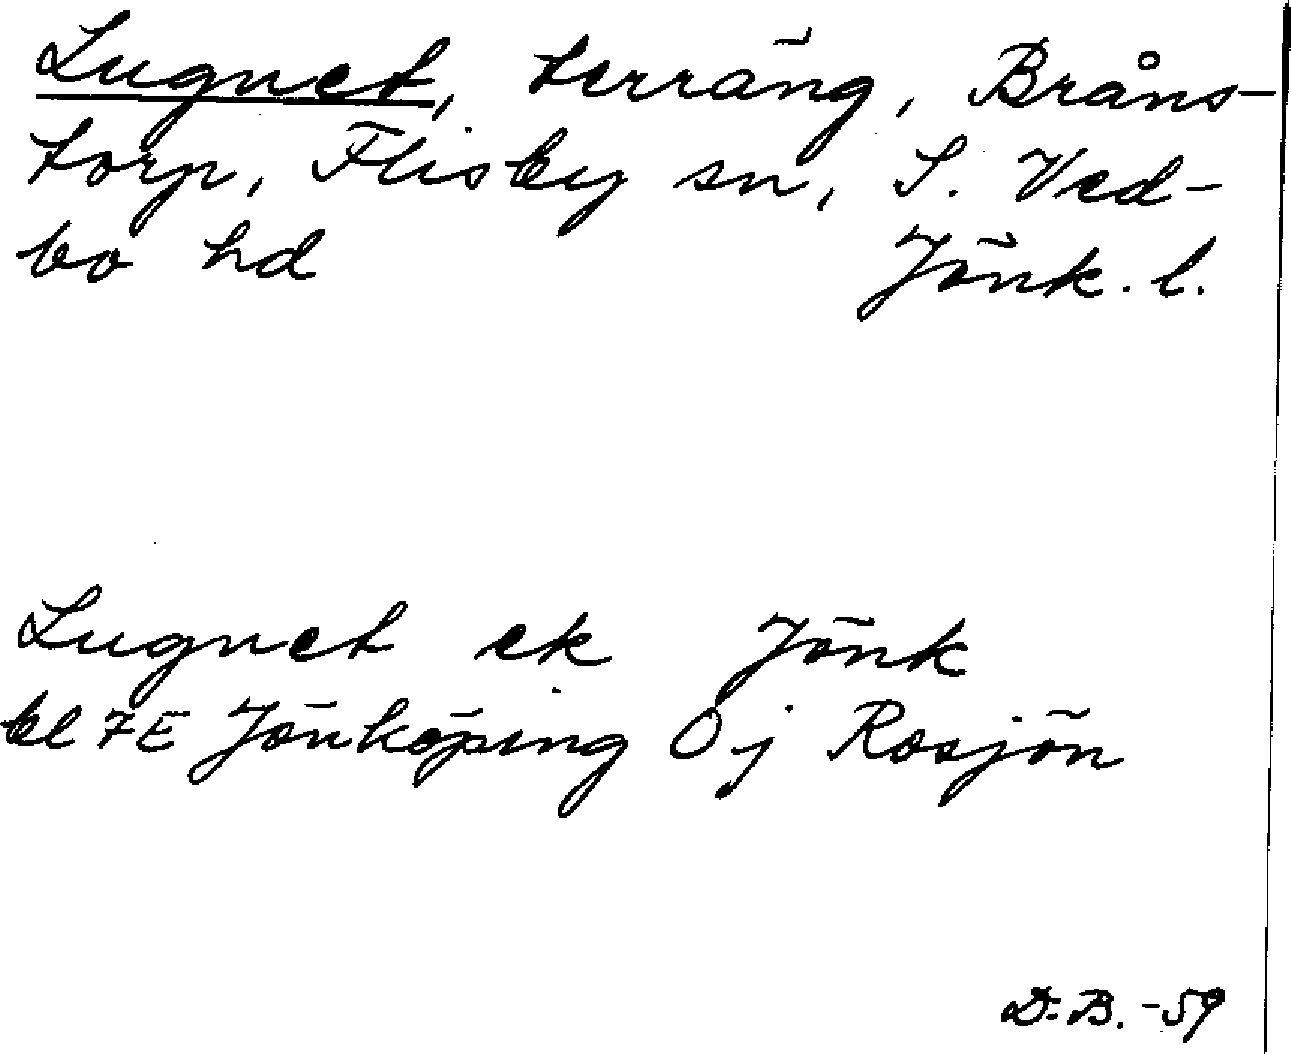 Lugnet, terräng, Bråns-
torp, Flisby sn, S. Ved-
bo hd Jönk. l.
Lugnet ek Jönk
bl 7E Jönköping Ö j Rosjön
D:B. -59